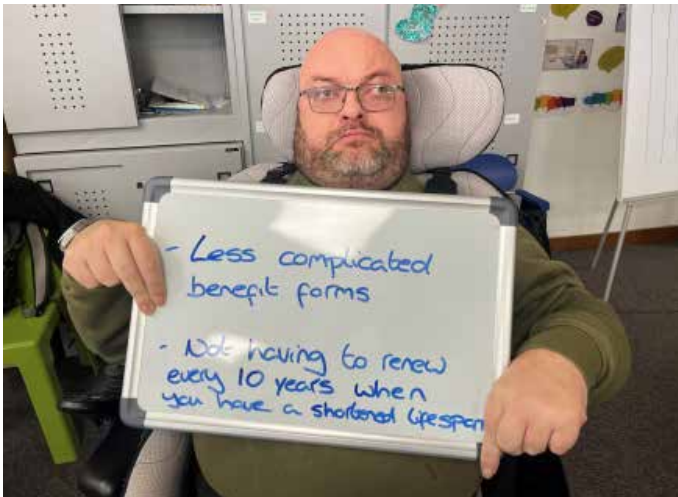 - Less complicated
benefit forms
- Not having to renew
every 10 years when
you have a shortened lifespan